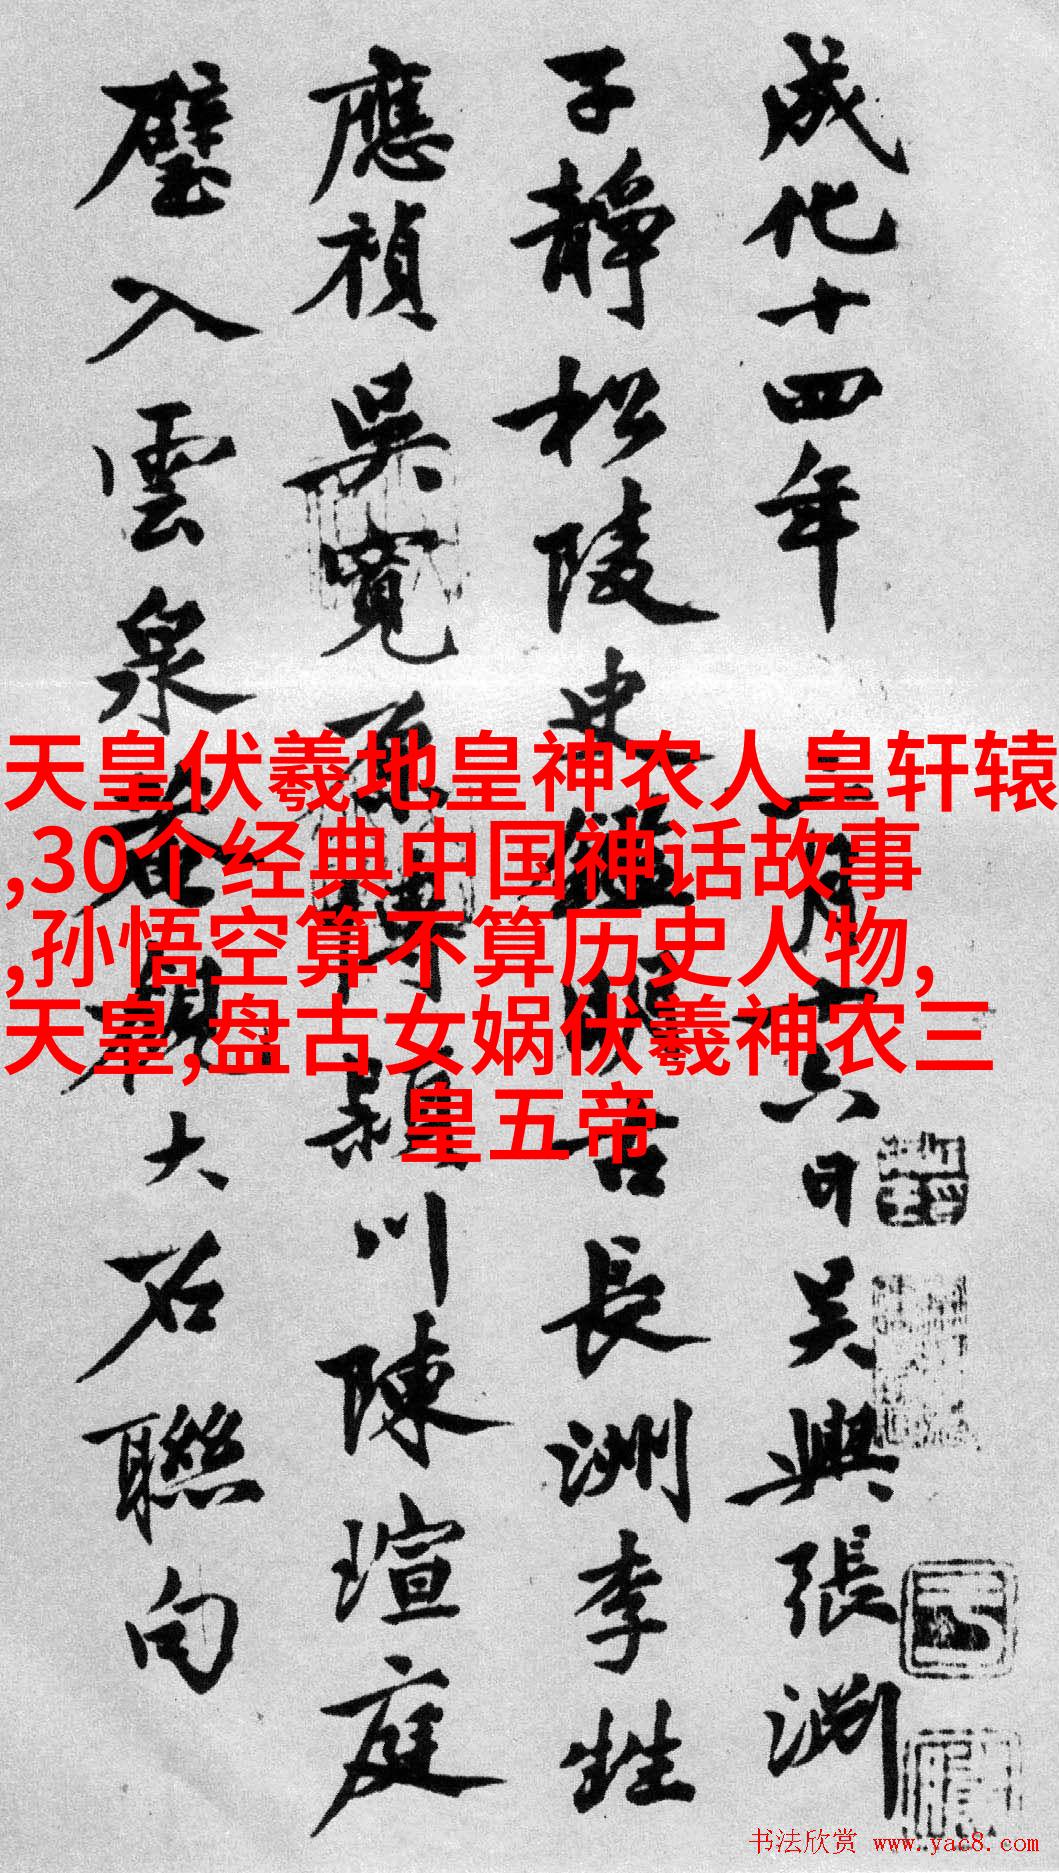 成化十四年月十六日吳興張淵
子靜松陵史鑑明古長洲李甡
應禎吳寬原博潁川陳瑄庭
璧入雲泉菴觀大石聯句
天皇伏羲地皇神农人皇轩辕
,30个经典中国神话故事
,孙悟空算不算历史人物,
天皇,盘古女娲伏羲神农三
皇五帝
书法欣赏 www.yac8.com